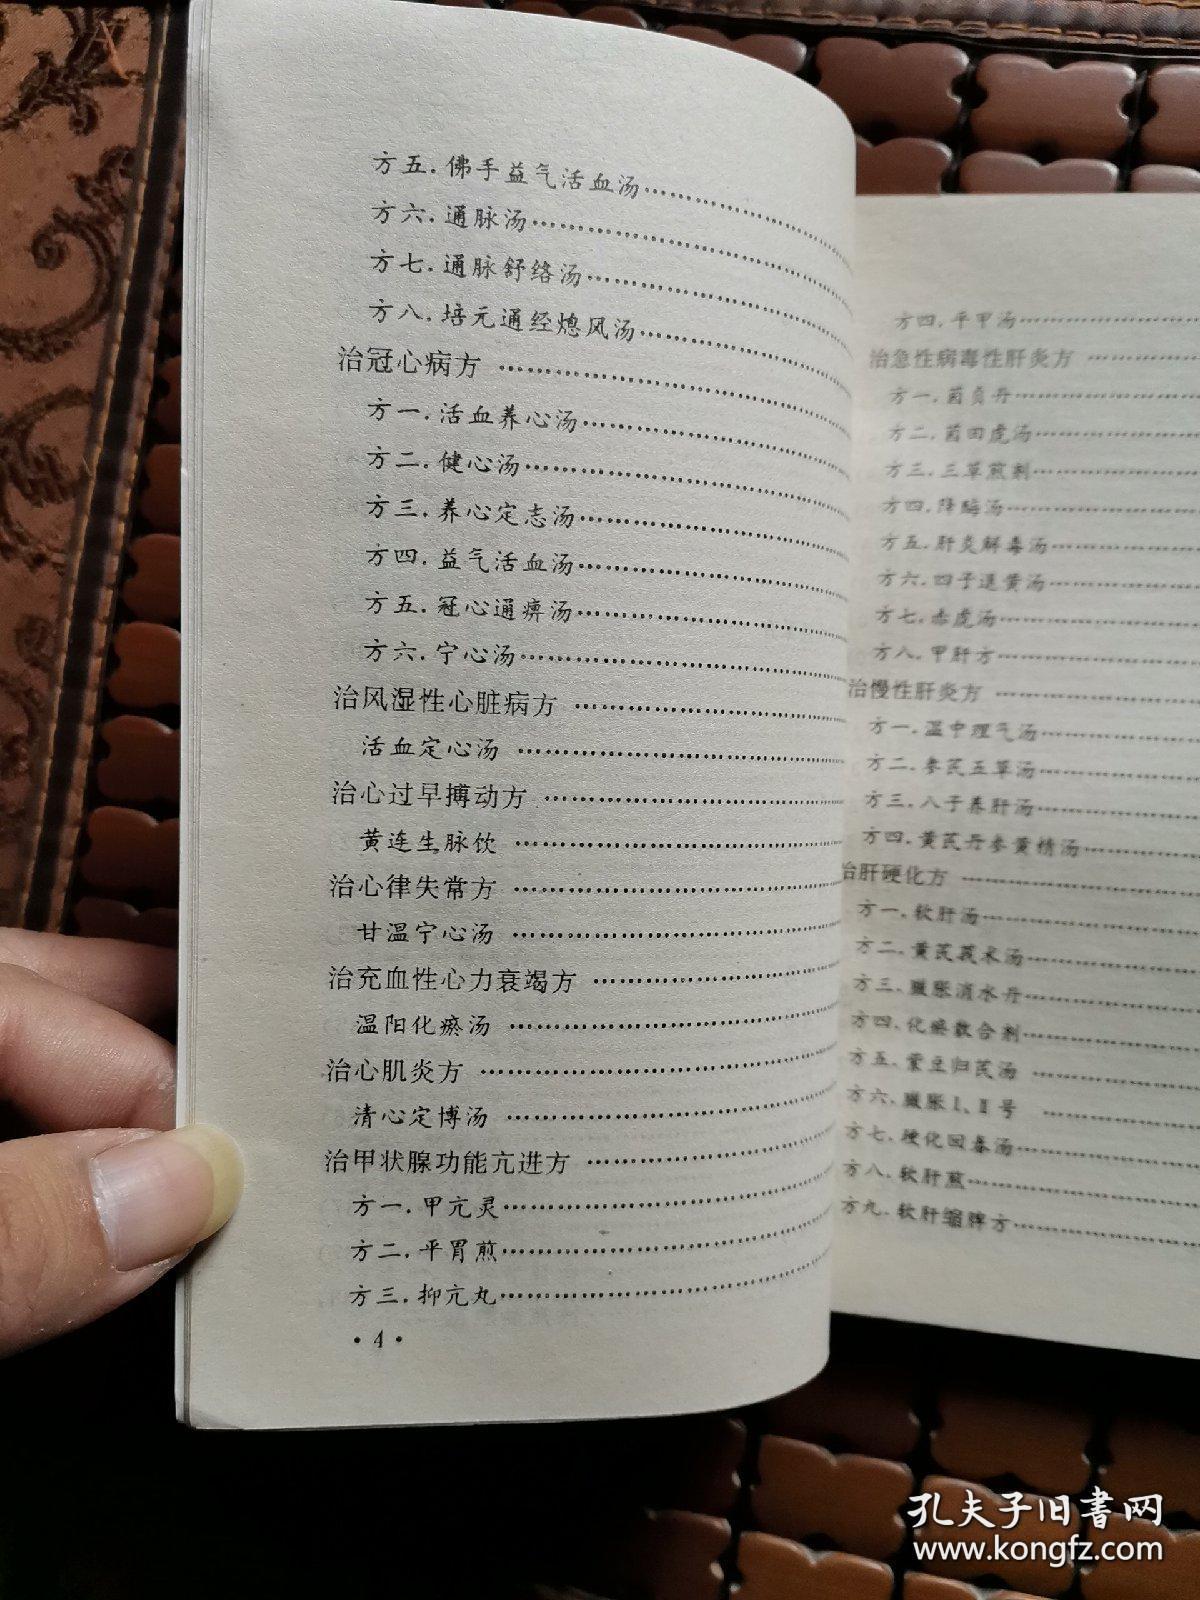 方五.佛手益气活血汤……………
方六.通脉汤……………
方七.通脉舒络汤……………
方八.培元通经熄风汤……………
治冠心病方 ……………
方一.活血养心汤……………
方二.健心汤……………
方三.养心定志汤……………
方四.益气活血汤……………
方五.冠心通痹汤……………
方六.宁心汤……………
治风湿性心脏病方 ……………
活血定心汤 ……………
治心过早搏动方 ……………
黄连生脉饮 ……………
治心律失常方 ……………
甘温宁心汤 ……………
治充血性心力衰竭方 ……………
温阳化瘀汤 ……………
治心肌炎方 ……………
清心定博汤 ……………
治甲状腺功能亢进方 ……………
方一.甲亢灵……………
方二.平胃煎……………
方三.抑亢丸……………
·4·
方四.平甲汤……………
治急性病毒性肝炎方 ……………
方一.茵贞丹……………
方二.茵田虎汤……………
方三.三草煎剂……………
方四.降酶汤……………
方五.肝炎解毒汤……………
方六.四子退黄汤……………
方七.赤虎汤……………
方八.甲肝方……………
治慢性肝炎方 ……………
方一.温中理气汤……………
方二.参芪五草汤……………
方三.八子养肝汤……………
方四.黄芪丹参黄精汤……………
治肝硬化方 ……………
方一.软肝汤……………
方二.黄芪莪术汤……………
方三.臌胀消水丹……………
方四.化瘀散合剂……………
方五.紫豆归芪汤 ……………
方六.臌胀Ⅰ、Ⅱ号 ……………
方七.硬化回春汤……………
方八.软肝煎……………
方九.软肝缩脾方……………
孔夫子旧书网
www.kongfz.com